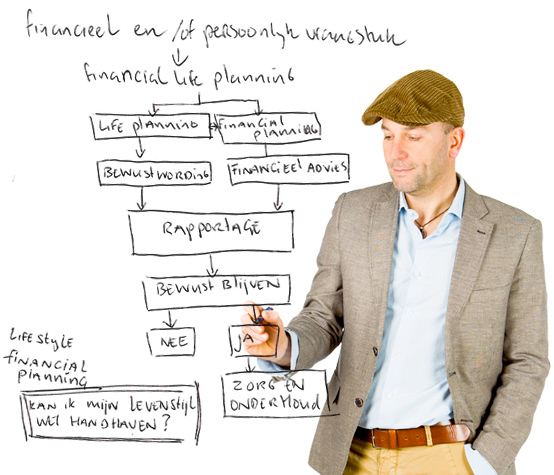 financieel en/of persoonlijk vraagstuk
financial life planning
LIFE planning
financial
planning
BEWUSTWORDING
FINANCIEEL ADVIES
RAPPORTAGE
BEWUST BLIJVEN
NEE
JA
ZORG EN
ONDERHOUD
LIFE style
financial
planning
KAN IK MIJN LEVENSTIJL
WEL HANDHAVEN?